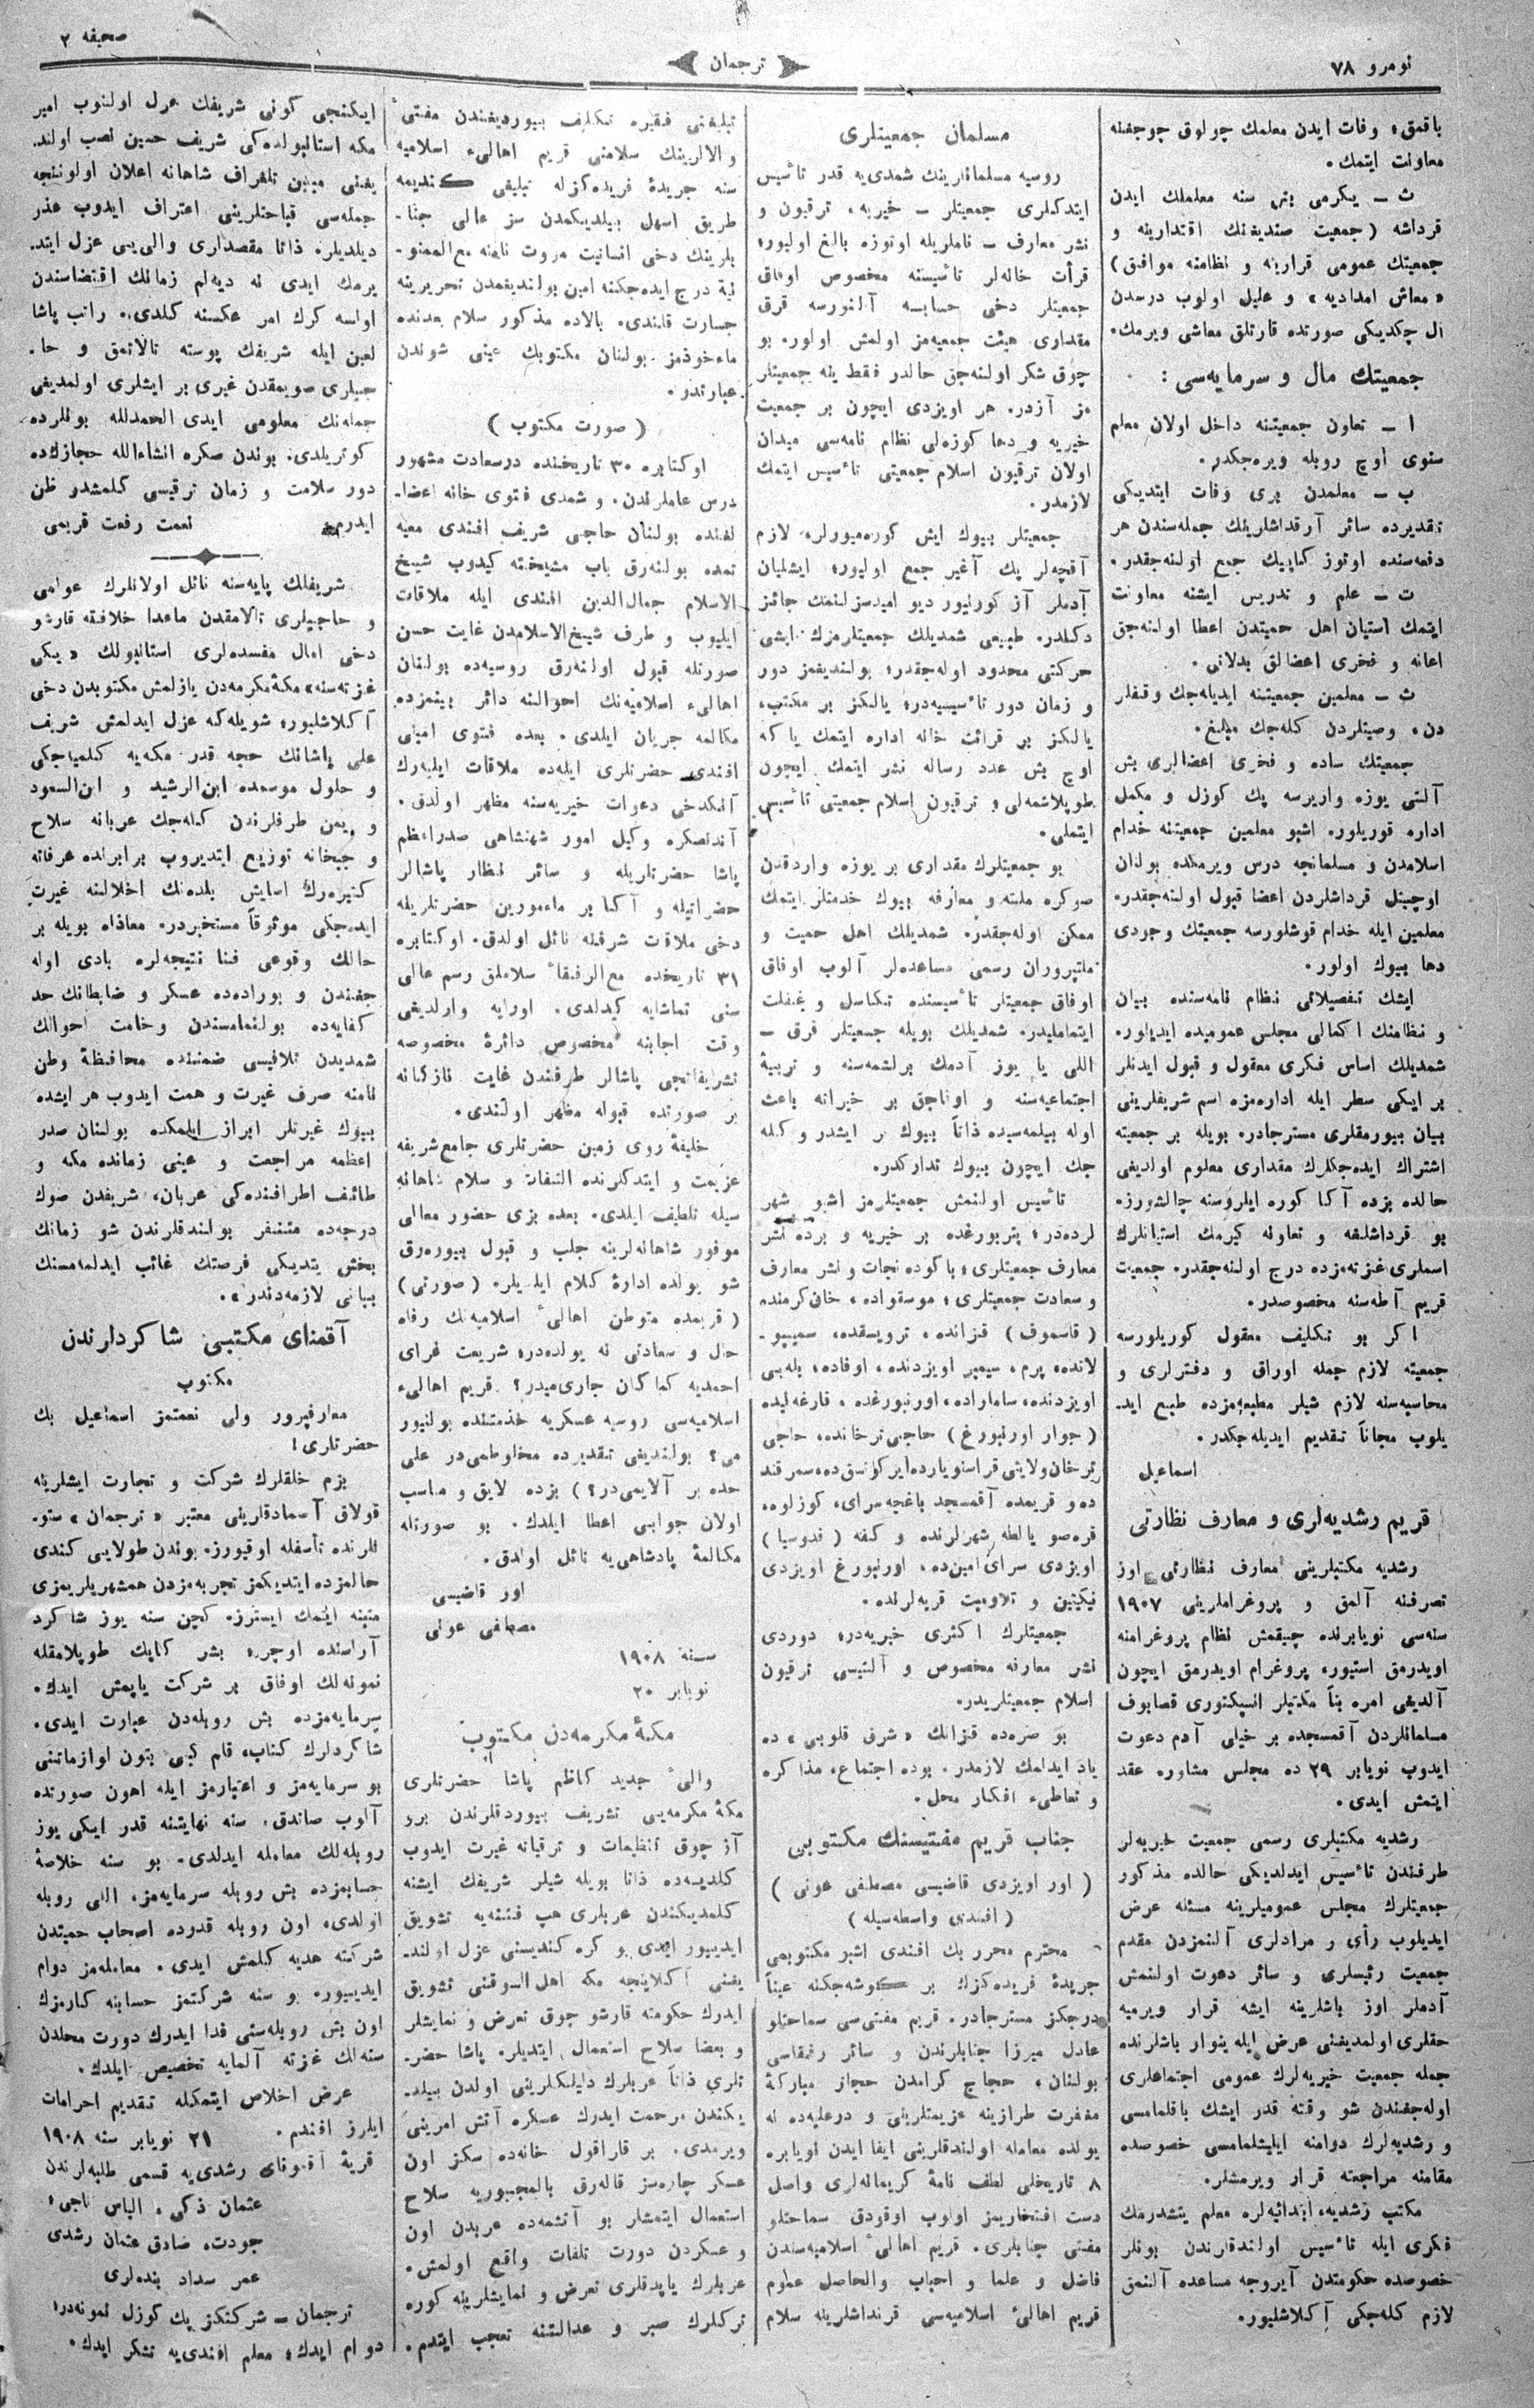 نومرو ٧٨
ترجمان
صحیفه ٢
باقمق؛ وفات ایدن معلمك چولوق چوجغنه
معاونت ایتمك.
ث ـ یكرمی بش سنه معلملك ایدن
قرداشه (جمعیت صندیغنك اقتدارینه و
جمعیتك عمومی قرارینه و نظامنه موافق)
«معاش امدادیه» و علیل اولوب درسدن
ال چكدیكی صورتده قارتلق معاشی ویرمك.
جمعیتك مال و سرمایه‌سی:
ا ـ تعاون جمعیتنه داخل اولان معلم
سنوی اوچ روبله ویره‌جكدر.
ب ـ معلمدن بری وفات ایتدیكی
تقدیرده سائر آرقداشلرینك جمله‌سندن هر
دفعه‌سنده اوتوز كاپیك جمع اولنه‌جقدر.
ت ـ علم و تدریس ایشنه معاونت
ایتمك استیان اهل حمیتدن اعطا اولنه‌جق
اعانه و فخری اعضالق بدلاتی.
ث ـ معلمین جمعیتنه ایدیله‌جك وقفلر
دن، وصیتلردن كله‌جك مبلغ.
جمعیتك ساده و فخری اعضالری بش
آلتی یوزه واریرسه پك كوزل و مكمل
اداره قوریلور. اشبو معلمین جمعیتنه خدام
اسلامدن و مسلمانجه درس ویرمكده بولنان
اوچیتل قرداشلردن اعضا قبول اولنه‌جقدر.
معلمین ایله خدام قوشلورسه جمعیتك وجودی
دها بیوك اولور.
ایشك تفصیلاتی نظام نامه‌سنده بیان
و نظامنك اكمالی مجلس عمومیده ایدیلور.
شمدیلك اساس فكری معقول و قبول ایدنلر
بر ایكی سطر ایله اداره‌مزه اسم شریفلرینی
بیان بیورمقلری مسترجادر. بویله بر جمعیته
اشتراك ایده‌جكلرك مقداری معلوم اولدیغی
حالده بزده آكا كوره ایلروسنه چالشورز.
بو قرداشلغه و تعاونه كیرمك استیانلرك
اسملری غزته‌مزده درج اولنه‌جقدر. جمعیت
قریم آطه‌سنه مخصوصدر.
اكر بو تكلیف معقول كوریلورسه
جمعیته لازم جمله اوراق و دفترلری و
محاسبه‌سنه لازم شیلر مطبعه‌مزده طبع ایدـ
یلوب مجاناً تقدیم ایدیله‌جكدر.
اسماعیل
قریم رشدیه‌لری و معارف نظارتی
رشدیه مكتبلرینی معارف نظارتی اوز
تصرفنه آلمق و پروغراملرینی ١٩٠٧
سنه‌سی نویابرنده چیقمش نظام پروغرامنه
اویدرمق استیور. پروغرام اویدرمق ایچون
آلدیغی امره بناً مكتبلر انسپكتوری قصابوف
مسلمانلردن آقمسجده بر خیلی آدم دعوت
ایدوب نویابر ٢٩ ده مجلس مشاوره عقد
ایتمش ایدی.
رشدیه مكتبلری رسمی جمعیت خیریه‌لر
طرفندن تاٴسیس ایدلدیكی حالده مذكور
جمعیتلرك مجلس عمومیلرینه مسئله عرض
ایدیلوب رأی و مرادلری آلنمزدن مقدم
جمعیت رئیسلری و سائر دعوت اولنمش
آدملر اوز باشلرینه ایشه قرار ویرمیه
حقلری اولمدیغنی عرض ایله ینوار باشلرنده
جمله جمعیت خیریه‌لرك عمومی اجتماعلری
اوله‌جغندن شو وقته قدر ایشك باقلمامسی
و رشدیه‌لرك دوامنه ایلیشلمامسی خصوصده
مقامنه مراجعته قرار ویرمشلر.
مكتب رشدیه، ابتدائیه‌لره معلم یتشدرمك
فكری ایله تاٴسیس اولندقلرندن بونلر
خصوصده حكومتدن آیروجه مساعده آلنمق
لازم كله‌جكی آكلاشلیور.
مسلمان جمعیتلری
روسیه مسلمانلرینك شمدی‌یه قدر تاٴسیس
ایتدكلری جمعیتلر ـ خیریه، ترقیون و
نشر معارف ـ ناملریله اوتوزه بالغ اولیور؛
قرأت خانه‌لر تاٴسیسنه مخصوص اوفاق
جمعیتلر دخی حسابه آلنورسه قرق
مقداری هیئت جمعیه‌مز اولمش اولور. بو
چوق شكر اولنه‌جق حالدر فقط ینه جمعیتلر
مز آزدر. هر اویزدی ایچون بر جمعیت
خیریه و دها كوزه‌لی نظام نامه‌سی میدان
اولان ترقیون اسلام جمعیتی تاٴسیس ایتمك
لازمدر.
جمعیتلر بیوك ایش كوره‌میورلر، لازم
آقچه‌لر پك آغیر جمع اولیور؛ ایشلیان
آدملر آز كورلیور دیو امیدسزلنمك جائز
دكلدر. طبیعی شمدیلك جمعیتلرمزك ایشی
حركتی محدود اوله‌جقدر؛ بولندیغمز دور
و زمان دور تاٴسیسیه‌در؛ یالكز بر مكتب،
یالكز بر قرائت خانه اداره ایتمك یا كه
اوچ بش عدد رساله نشر ایتمك ایچون
طوپلاشمه‌لی و ترقیون اسلام جمعیتی تاٴسیس
ایتملی.
بو جمعیتلرك مقداری بر یوزه واردقدن
صوكره ملته و معارفه بیوك خدمتلر ایتمك
ممكن اوله‌جقدر. شمدیلك اهل حمیت و
ملتپروران رسمی مساعده‌لر آلوب اوفاق
اوفاق جمعیتلر تاٴسیسنده تكاسل و غفلت
ایتمامیلیدر. شمدیلك بویله جمعیتلر قرق ـ
اللی یا یوز آدمك برلشمه‌سنه و تربیهٔ
اجتماعیه‌سنه و اوفاجق بر خیرانه باعث
اوله بیلمه‌سیده ذاتاً بیوك بر ایشدر و كله
جك ایچون بیوك تداركدر.
تاٴسیس اولنمش جمعیتلرمز اشبو شهر
لرده‌در؛ پتربورغده بر خیریه و برده نشر
معارف جمعیتلری؛ باكوده نجات و نشر معارف
و سعادت جمعیتلری؛ موسقواده، خان كرمنده
(قاسموف) قزانده، ترویسقده، سمیپوـ
لانده، پرم، سیمبر اویزدنده، اوفاده، بله‌بی
اویزدنده، ساماراده، اورنبورغده، قارغه‌لیده
(جوار اورنبورغ) حاجی‌ترخانده، حاجی
ترخان ولایتی قراسنویارده، ایركوتسق‌ده، سمرقند
ده و قریمده آقمسجد باغچه‌سرای، كوزلوه،
قره‌صو یالطه شهرلرنده و كفه (فدوسیا)
اویزدی سرای‌امین‌ده، اورنبورغ اویزدی
نیكیتین و تلاومیت قریه‌لرنده.
جمعیتلرك اكثری خیریه‌در؛ دوردی
نشر معارفه مخصوص و آلتیسی ترقیون
اسلام جمعیتلریدر.
بو صره‌ده قزانك «شرق قلوبی» ده
یاد ایدلمك لازمدر. بوده اجتماع، مذاكره
و تعاطیء افكار محل.
جناب قریم مفتیسنك مكتوبی
(اور اویزدی قاضیسی مصطفی عونی)
(افندی واسطه‌سیله)
محترم محرر بك افندی اشبو مكتوبمی
جریدهٔ فریده‌كزك بر كوشه‌جكنه عیناً
درجكز مسترجادر. قریم مفتی‌سی سماحتلو
عادل میرزا جنابلرندن و سائر رفقاسی
بولنان، حجاج كرامدن حجاز مباركهٔ
مغفرت طرازینه عزیمتلرینی و درعلیه‌ده نه
یولده معامله اولندقلرینی ایفا ایدن نویابره
٨ تاریخلی لطف نامهٔ كریمانه‌لری واصل
دست افتخاریمز اولوب اوقودق سماحتلو
مفتی جنابلری. قریم اهالیٴ اسلامیه‌سندن
فاضل و علما و احباب والحاصل عموم
قریم اهالیٴ اسلامیه‌سی قرنداشلرینه سلام
تبلیغنی فقیره تكلیف بیوردیغندن مفتیٴ
والالرینك سلامنی قریم اهالیء اسلامیه
سنه جریدهٔ فریده‌كزله تبلیغی كندیمه
طریق اسهل بیلدیكمدن سز عالی جناـ
بلرینك دخی انسانیت مروت نامنه مع‌الممنوـ
نیة درج ایده‌جكنه امین بولندیغمدن تحریرینه
جسارت قلندی. بالاده مذكور سلام بعدنده
ماٴخوذمز بولنان مكتوبك عینی شوندن
عبارتدر.
(صورت مكتوب)
اوكتابره ٣٠ تاریخنده درسعادت مشهور
درس عاملرندن، و شمدی فتوی خانه اعضاـ
لغنده بولنان حاجی شریف افندی معیه
تمده بولنه‌رق باب مشیخته كیدوب شیخ
الاسلام جمال‌الدین افندی ایله ملاقات
ایلیوب و طرف شیخ‌الاسلامدن غایت حسن
صورتله قبول اولنه‌رق روسیه‌ده بولنان
اهالیء اسلامیه‌نك احوالنه دائر بینمزده
مكالمه جریان ایلدی. بعده فتوی امینی
افندی حضرتلری ایله‌ده ملاقات ایلیه‌رك
آنكدخی دعوات خیریه‌سنه مظهر اولدق.
آندنصكره وكیل امور شهنشاهی صدراعظم
پاشا حضرتلریله و سائر نظار پاشالر
حضراتیله و آكابر ماٴمورین حضرتلریله
دخی ملاقات شرفنه نائل اولدق. اوكتابره
٣١ تاریخده مع‌الرفقاٴ سلاملق رسم عالی
سنی تماشایه كیدلدی. اورایه وارلدیغی
وقت اجابنه مخصوص دائرهٔ مخصوصه
تشریفاتجی پاشالر طرفندن غایت نازكانه
بر صورتده قبوله مظهر اولندی.
خلیفهٔ روی زمین حضرتلری جامع شریفه
عزیمت و ایتدكلرنده التفات و سلام شاهانه
سیله تلطیف ایلدی. بعده بزی حضور معالی
موفور شاهانه‌لرینه جلب و قبول بیوره‌رق
شو یولده ادارهٔ كلام ایلدیلر. (صورتی)
(قریمده متوطن اهالیٴ اسلامیه‌نك رفاه
حال و سعادتی نه یولده‌در؛ شریعت غرای
احمدیه كماكان جاری‌میدر؟ قریم اهالیء
اسلامیه‌سی روسیه عسكریه خدمتنده بولنیور
می؟ بولندیغی تقدیرده مخلوطمی‌در علی
حده بر آلایمی‌در؟) بزده لایق و مناسب
اولان جوابی اعطا ایلدك. بو صورتله
مكالمهٔ پادشاهی‌یه نائل اولدق.
اور قاضیسی
مصطفی عونی
سنه ١٩٠٨
نویابر ٢٠
مكهٔ مكرمه‌دن مكتوب
والیٴ جدید كاظم پاشا حضرتلری
مكهٔ مكرمه‌یی تشریف بیوردقلرندن برو
آز چوق تنظیمات و ترقیاته غیرت ایدوب
كلدیسه‌ده ذاتا بویله شیلر شریفك ایشنه
كلمدیكندن عربلری هپ فتنه‌یه تشویق
ایدییور ایدی بو كره كندیسنی عزل اولندـ
یغنی آكلاینجه مكه اهل السوقنی تشویق
ایدرك حكومته قارشو چوق تعرض و نمایشلر
و بعضا سلاح استعمال ایتدیلر. پاشا حضرـ
تلری ذاتاً عربلرك دلیلكلرینی اولدن بیلدـ
یكندن مرحمت ایدرك عسكره آتش امرینی
ویرمدی. بر قاراقول خانه‌ده سكز اون
عسكر چاره‌سز قاله‌رق بالمجبوریه سلاح
استعمال ایتمشلر بو آتشمه‌ده عربدن اون
و عسكردن دورت تلفات واقع اولمش.
عربلرك یاپدقلری تعرض و نمایشلرینه كوره
تركلرك صبر و عدالتنه تعجب ایتدم.
ایكنجی كونی شریفك عزل اولنوب امیر
مكه استانبولده‌كی شریف حسین نصب اولندـ
یغنی مبین تلغراف شاهانه اعلان اولوننجه
جمله‌سی قباحتلرینی اعتراف ایدوب عذر
دیلدیلر. ذاتا مقصدلری والی‌یی عزل ایتدـ
یرمك ایدی نه دیه‌لم زمانك اقتضاسندن
اولسه كرك امر عكسنه كلدی. راتب پاشا
لعین ایله شریفك پوسته تالاتمق و حاـ
جیلری صویمقدن غیری بر ایشلری اولمدیغی
جمله‌نك معلومی ایدی الحمدلله بونلرده
كوتریلدی. بوندن صكره انشاءالله حجازكده
دور سلامت و زمان ترقیسی كلمشدر ظن
ایدرم. نعمت رفعت قریمی
شریفلك پایه‌سنه نائل اولانلرك عوامی
و حاجیلری تالامقدن ماعدا خلافته قارشو
دخی امال مفسده‌لری استانبولك «یكی
غزته‌سنه» مكهٔ مكرمه‌دن یازلمش مكتوبدن دخی
آكلاشلیور؛ شویله‌كه عزل ایدلمش شریف
علی پاشانك حجه قدر مكه‌یه كلمیه‌جكی
و حلول موسمده ابن‌الرشید و ابن‌السعود
و یمن طرفلرندن كله‌جك عربانه سلاح
و جبخانه توزیع ایتدیروب برابرلنده عرفانه
كتیره‌رك اسایش بلده‌نك اخلالنه غیرت
ایده‌جكی موثوقاً مستخبردر. معاذالله بویله بر
حالك وقوعی فنا نتیجه‌لره بادی اوله
جغندن و بوراده‌ده عسكر و ضابطانك حد
كفایه‌ده بولنمامسندن وخامت احوالك
شمدیدن تلافیسی ضمننده محافظهٔ وطن
نامنه صرف غیرت و همت ایدوب هر ایشده
بیوك غیرتلر ابراز ایلمكده بولنان صدر
اعظمه مراجعت و عینی زمانده مكه و
طائف اطرافنده‌كی عربان، شریفدن صوك
درجه‌ده متنفر بولندقلرندن شو زمانك
بخش یتدیكی فرصتك غائب ایدلمه‌مسنك
بیانی لازمه‌دندر».
آقمنای مكتبی شاكردلرندن
مكتوب
معارفپرور ولی نعمتمز اسماعیل بك
حضرتلری!
بزم خلقلرك شركت و تجارت ایشلرینه
قولاق آسمادقلرینی معتبر «ترجمان» ستوـ
نلرنده تأسفله اوقیورز. بوندن طولایی كندی
حالمزده ایتدیكمز تجربه‌مزدن همشهریلریمزی
متنبه ایتمك ایسترز. كچن سنه یوز شاكرد
آراسنده اوچر، بشر كاپك طوپلامقله
نمونه‌لك اوفاق بر شركت یاپمش ایدك.
سرمایه‌مزده بش روبله‌دن عبارت ایدی.
شاكردلرك كتاب، قلم كبی بتون لوازماتنی
بو سرمایه‌مز و اعتبارمز ایله اهون صورتده
آلوب صاتدق. سنه نهایتنه قدر ایكی یوز
روبله‌لك معامله ایدلدی. بو سنه خلاصهٔ
حسابمزده بش روبله سرمایه‌مز، اللی روبله
اولدی. اون روبله قدوده اصحاب حمیتدن
شركته هدیه كلمش ایدی. معامله‌مز دوام
ایدییور. بو سنه شركتمز حسابنه كارمزك
اون بش روبله‌سنی فدا ایدرك دورت محلدن
سنه‌لك غزته آلمایه تخصیص ایلدك.
عرض اخلاص ایتمكله تقدیم احرامات
ایلرز افندم. ٢١ نویابر سنه ١٩٠٨
قریهٔ آقمنای رشدی‌یه قسمی طلبه‌لرندن
عثمان ذكی، الیاس ناجی،
جودت، صادق عثمان رشدی
عمر سداد بنده‌لری
ترجمان ـ شركتكز پك كوزل نمونه‌در؛
دوام ایدك؛ معلم افندی‌یه تشكر ایدك.